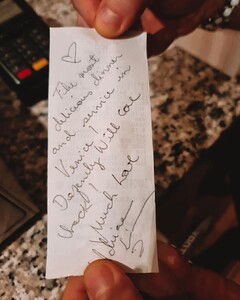 The most
delicious dinner
and service in
Venice!
Definitly will come
back!
Much Love